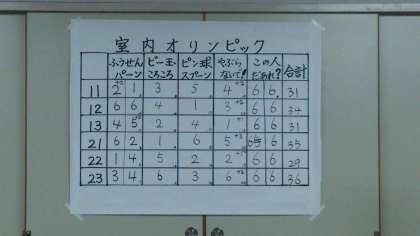 室内オリンピック
ふうせんパーン ビー玉ころころ ピン球スプーン やぶらないで! この人だあれ? 合計
11 2 1 3 5 4 6 6 31
12 6 6 4 1 3 6 6 34
13 4 5 2 4 1 6 6 31
21 6 2 1 6 5 6 35
22 1 4 5 2 2 6 6 29
23 3 4 6 3 6 6 6 36